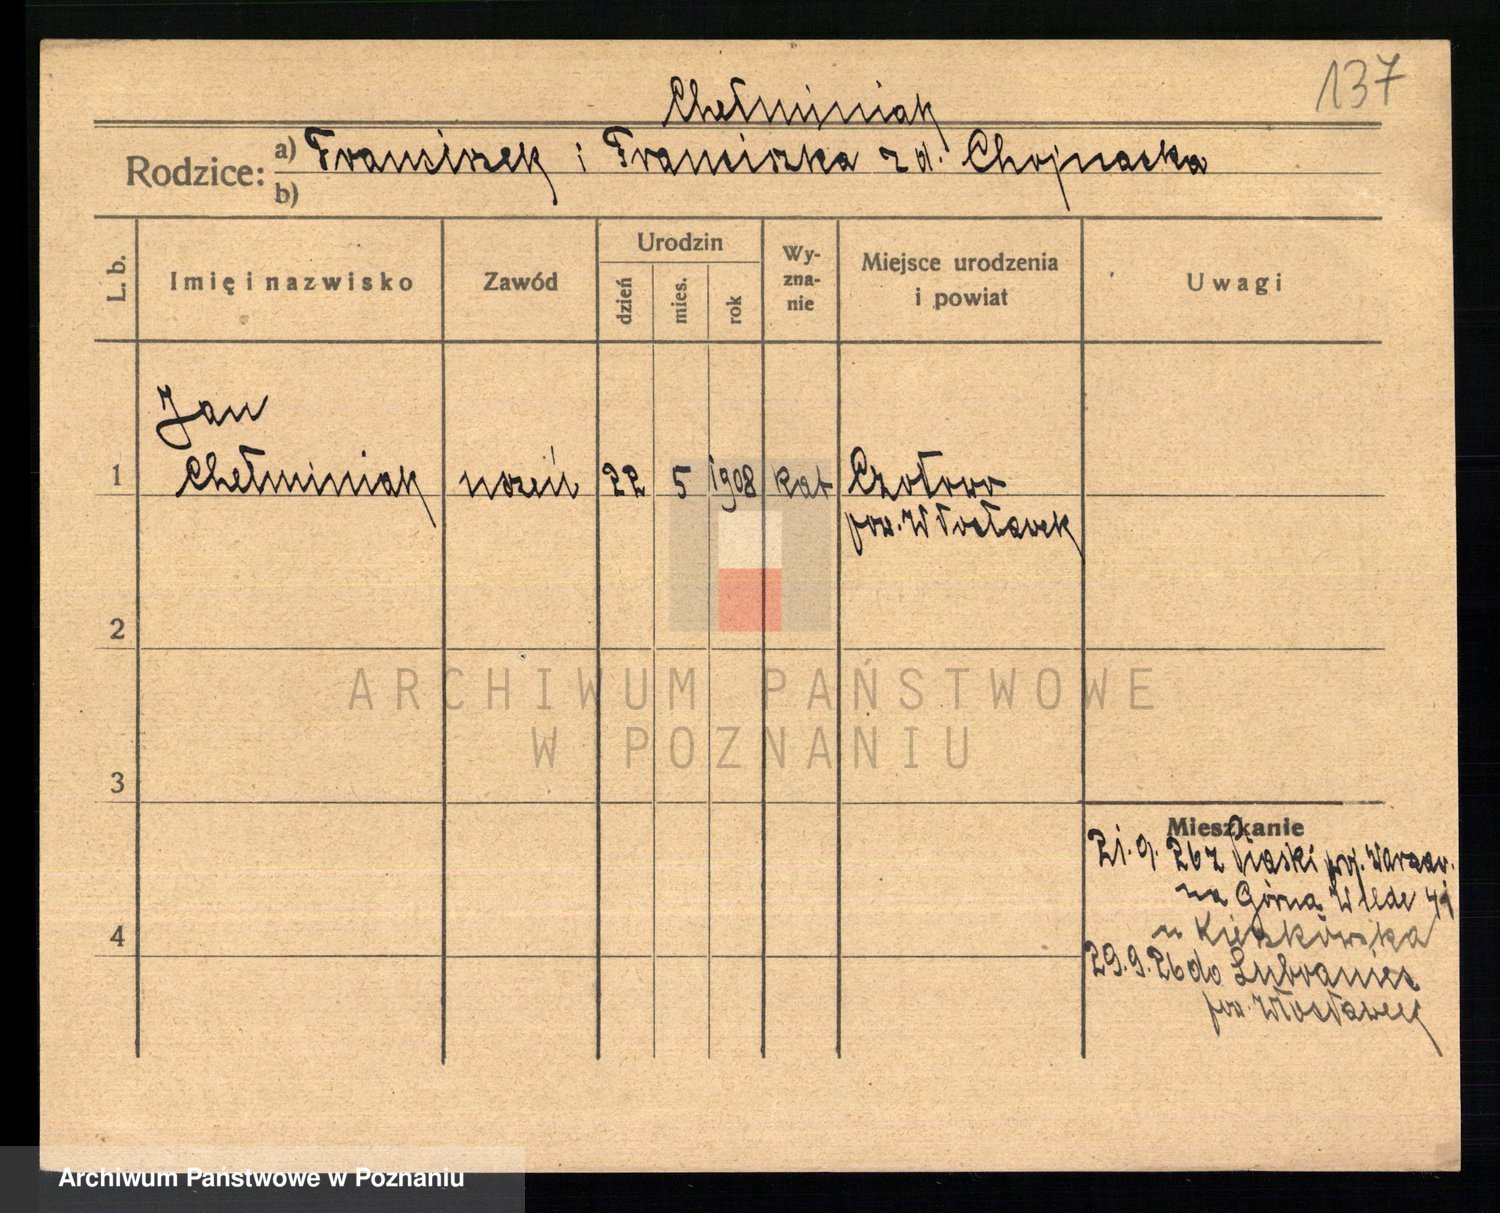 137
Chełminiak
Rodzice: a) Franciszek i Franciszka z d. Chojnacka
b)
L. b. Imię i nazwisko Zawód Urodzin dzień mies. rok Wy-zna-nie Miejsce urodzenia i powiat Uwagi
Jan
1 Chełminiak uczeń 22 5 1908 kat Czołowo
pow. Włocławek
2
ARCHIWUM PAŃSTWOWE
W POZNANIU
3
Mieszkanie
21.9.26 z Piaski
na Górna Wilde
29.9.26 do Lubraniec
pow. Włocławek
4
Archiwum Państwowe w Poznaniu